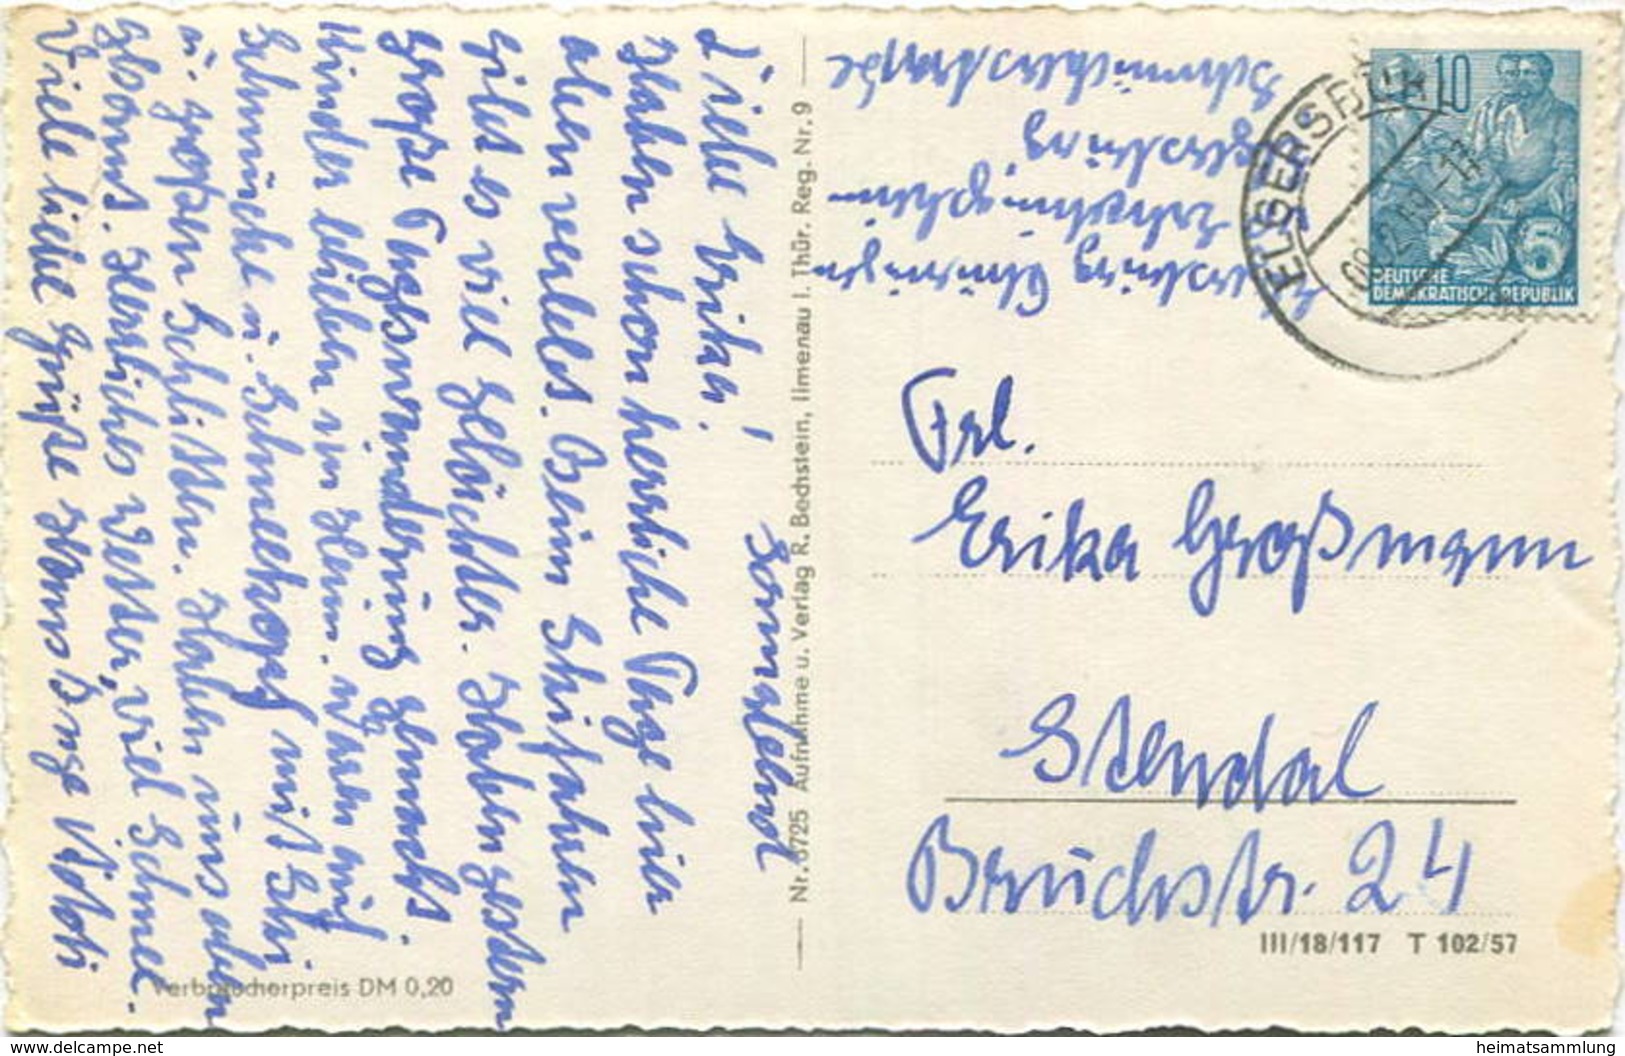 Sonnabend
Liebe Erika!
Haben schon herrliche Tage hier
oben verlebt. Beim Skifahren
gibt es viel Gelächter. Haben gestern
große Tageswanderung gemacht.
Kinder blieben im Heim. Waren mit
Schmücke u. Schneekopf mit Ski
u. großen Schlitten. Haben uns oben
gesonnt. Herrliches Wetter, viel Schnee.
Viele liebe Grüße Hans Inge
Elgersburg Thüringen
Erholungsheim
Elgersburg
Schmücker Straße
Nr. 6725 Aufnahme u. Verlag R. Bechstein, Ilmenau i. Thür. Reg. Nr. 9
ELGERSBURG
10
5
DEUTSCHE
DEMOKRATISCHE REPUBLIK
Frl.
Erika Großmann
Stendal
Bruchstr. 24
III/18/117 T 102/57
Verbraucherpreis DM 0,20
www.delcampe.net
heimatsammlung